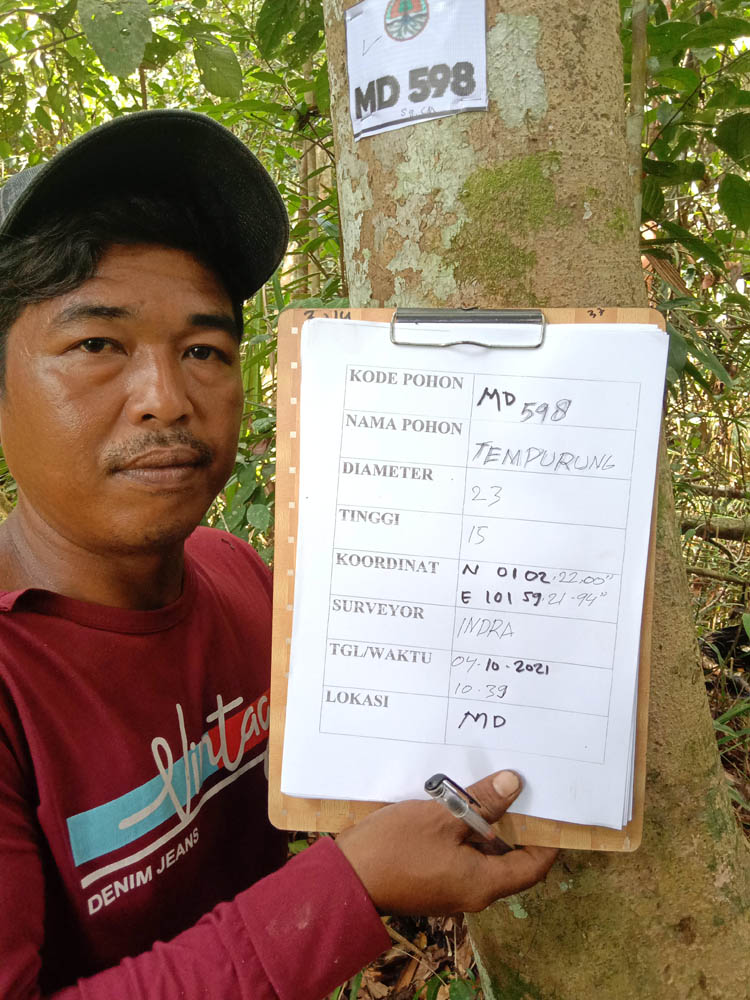 MD 598
KODE POHON MD 598
NAMA POHON TEMPURUNG
DIAMETER 23
TINGGI 15
KOORDINAT N 01 02.22.00"
E 101 59.21.94"
SURVEYOR INDRA
TGL/WAKTU 04.10.2021
10.39
LOKASI MD
Vintag
DENIM JEANS